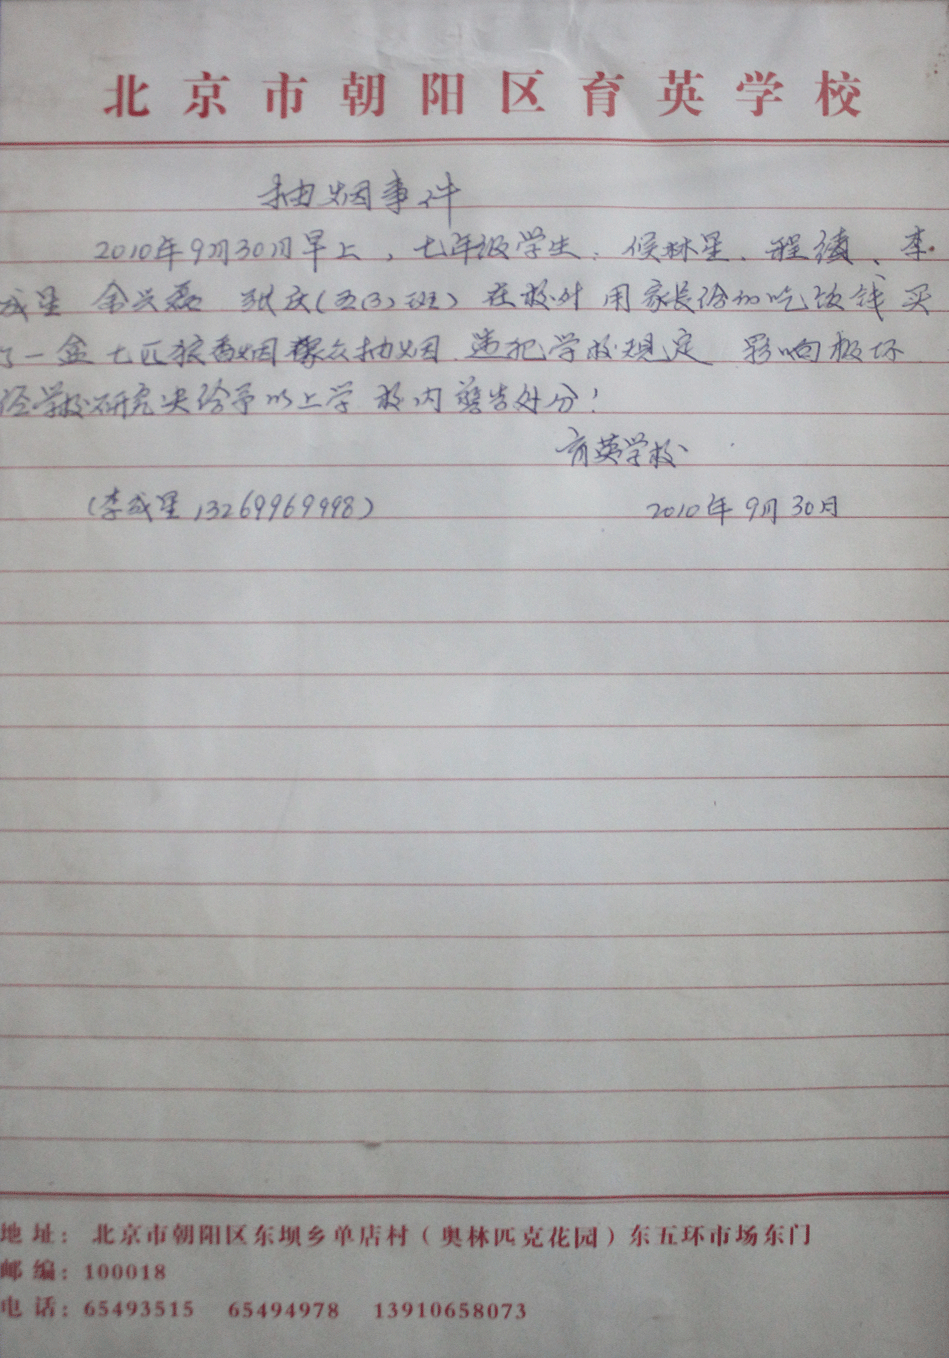 北京市朝阳区育英学校
抽烟事件
2010年9月30日早上，七年级学生：候林星、程续、李
成星 金兴磊 张庆（五（3）班）在校外 用家长给的吃饭钱 买
了一盒七匹狼香烟 聚众抽烟 违犯学校规定 影响极坏
经学校研究决给予以上学 校内警告处分！
育英学校
（李成星 13269969998）
2010年9月30日
地 址：北京市朝阳区东坝乡单店村（奥林匹克花园）东五环市场东门
邮 编：100018
电 话：65493515 65494978 13910658073